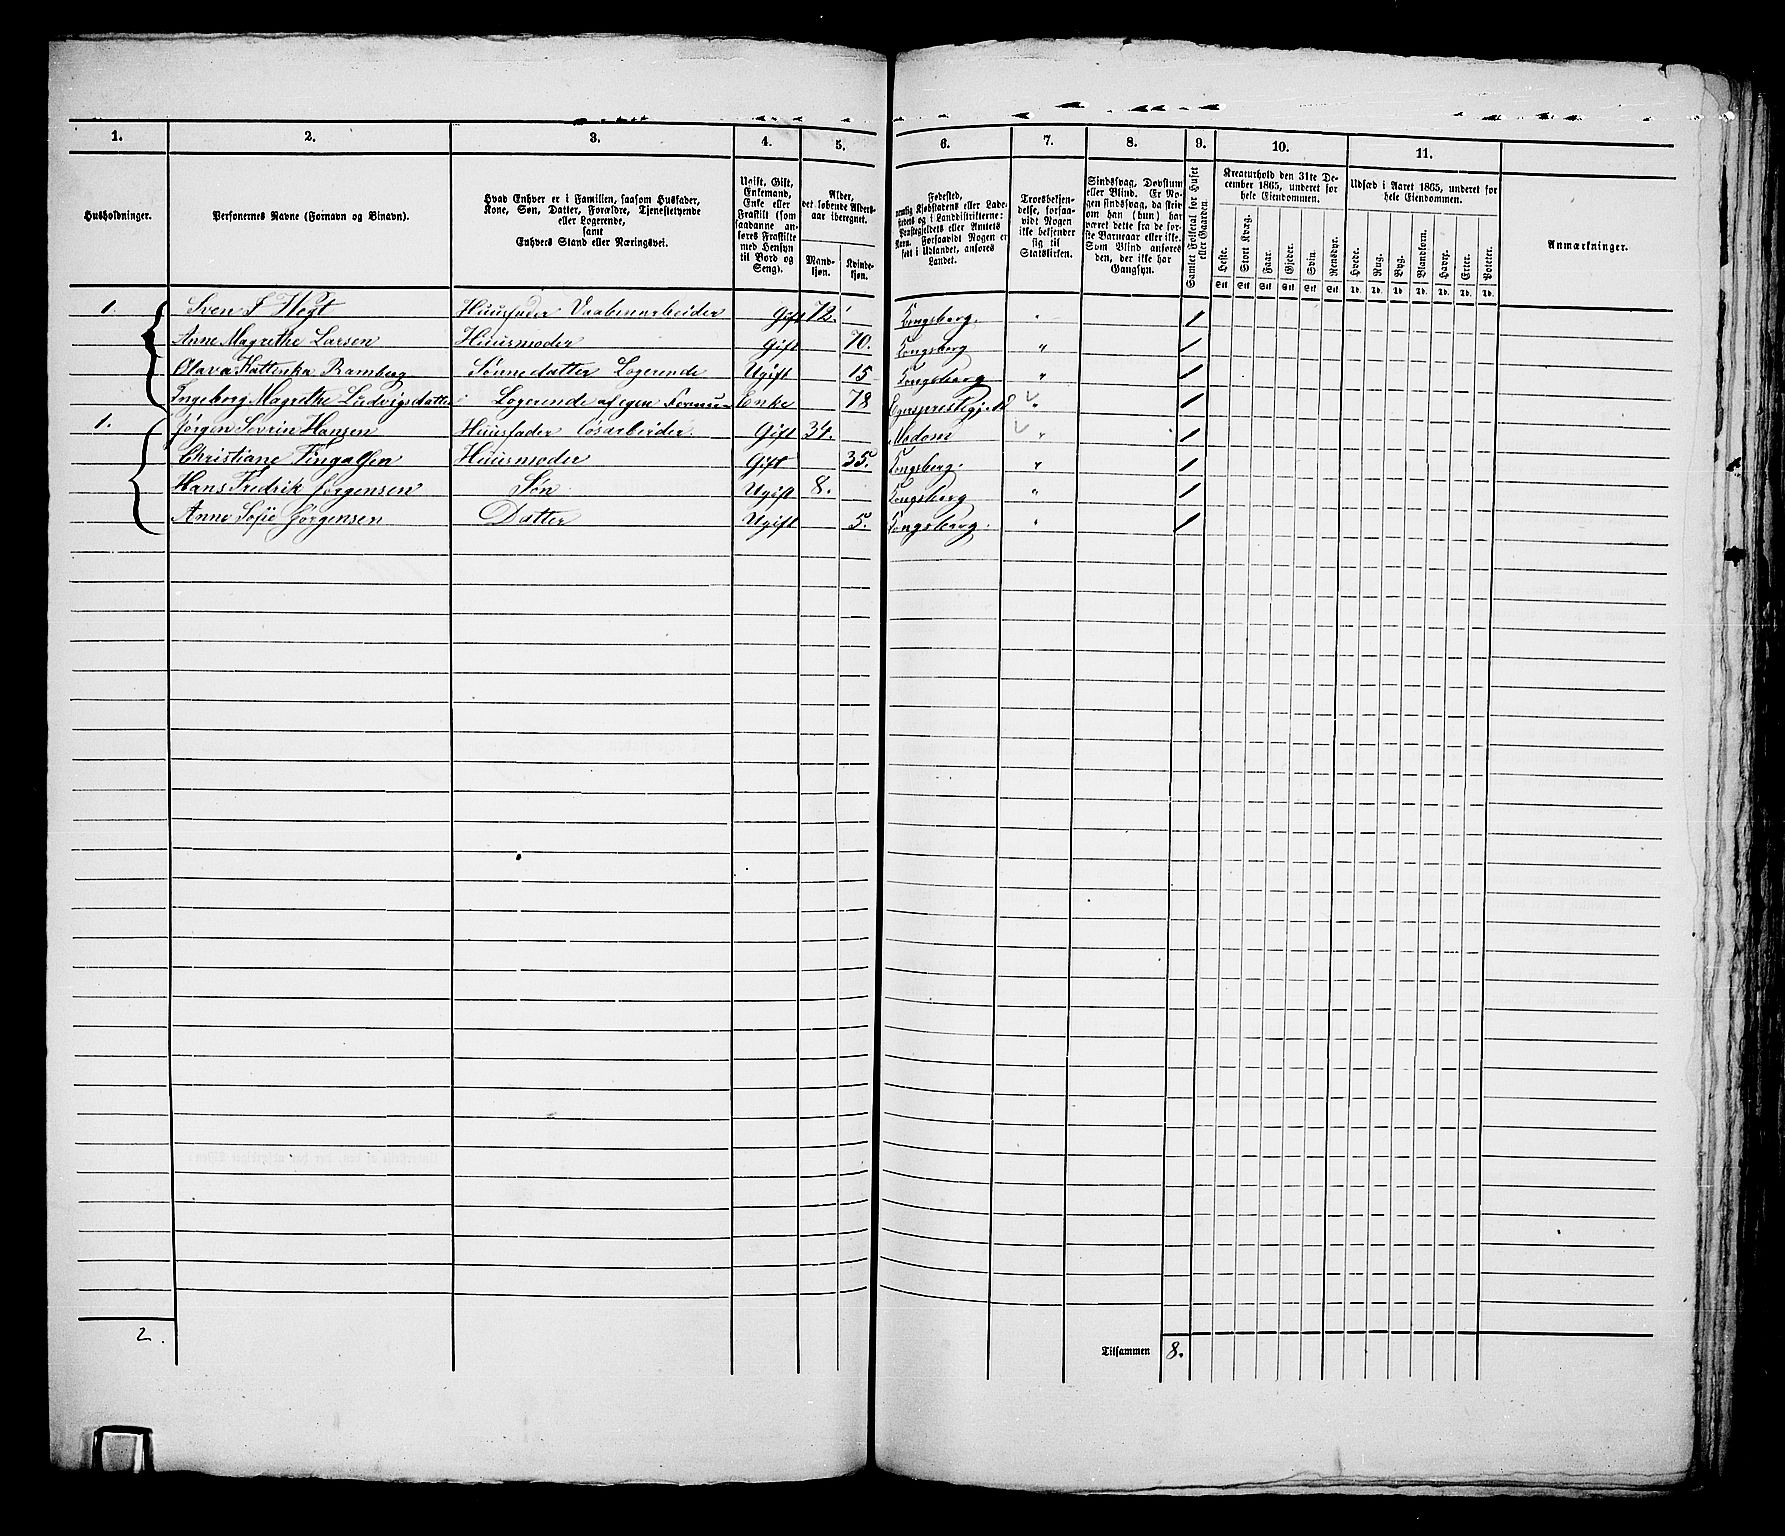 1. 2. 3. 4. 5. 6. 7. 8. 9. 10. 11.
Husholdninger.
Personernes Navne (Fornavn og Binavn).
Hvad Enhver er i Familien, saasom Husfader,
Kone, Søn, Datter, Forældre, Tjenestetyende
eller Logerende,
samt
Enhvers Stand eller Næringsvei.
Ugift, Gift,
Enkemand,
Enke eller
Fraskilt (som
saadanne an-
føres Fraskilte
med Hensyn
til Bord og
Seng).
Alder,
det løbende Alders-
aar iberegnet.
Mand-
kjøn.
Kvinde-
kjøn.
Fødested,
nemlig Kjøbstadens eller Lade-
stedets og i Landdistrikterne:
Præstegjeldets eller Amtets
Navn. Forsaavidt Nogen er
født i Udlandet, anføres
Landet.
Troesbekjen-
delse, forsaa-
vidt Nogen
ikke bekjender
sig til
Statskirken.
Sindssvag, Døvstum
eller Blind. Er No-
gen sindssvag, da skri-
ves om han (hun) har
været dette fra de før-
ste Barneaar eller ikke.
Som Blind anføres
den, der ikke har
Gangsyn.
Samlet Folketal for Huset
eller Gaarden.
Kreaturhold den 31te De-
cember 1865, underet for
hele Eiendommen.
Heste. Stort Kvæg. Faar. Gjeder. Svin. Rensdyr.
Stk Stk Stk Stk Stk Stk
Udsæd i Aaret 1865, underet for
hele Eiendommen.
Hvede. Rug. Byg. Blandkorn. Havre. Erter. Poteter.
Td. Td. Td. Td. Td. Td. Td.
Anmærkninger.
1. Sven F Hegt Huusfader Vaabenarbeider Gift 72. Kongsberg. " /
Anne Magrethe Larsen Huusmoder Gift 70. Kongsberg " /
Olava Kattinka Ramberg Sønnedatter Logerende Ugift 15 Kongsberg " /
Ingeborg Magrethe Ludvigsdatter Logerende af egen Formue Enke 78 Egerspræstegjeld " /
1. Jørgen Sevrin Hansen Huusfader Løsarbeider. Gift 34. Modom " /
Christiane Fingalsen Huusmoder Gift 35. Kongsberg. " /
Hans Fredrik Jørgensen Søn Ugift 8. Kongsberg " /
Anne Sofie Jørgensen Datter Ugift 5. Kongsberg. " /
2.
Tilsammen 8.